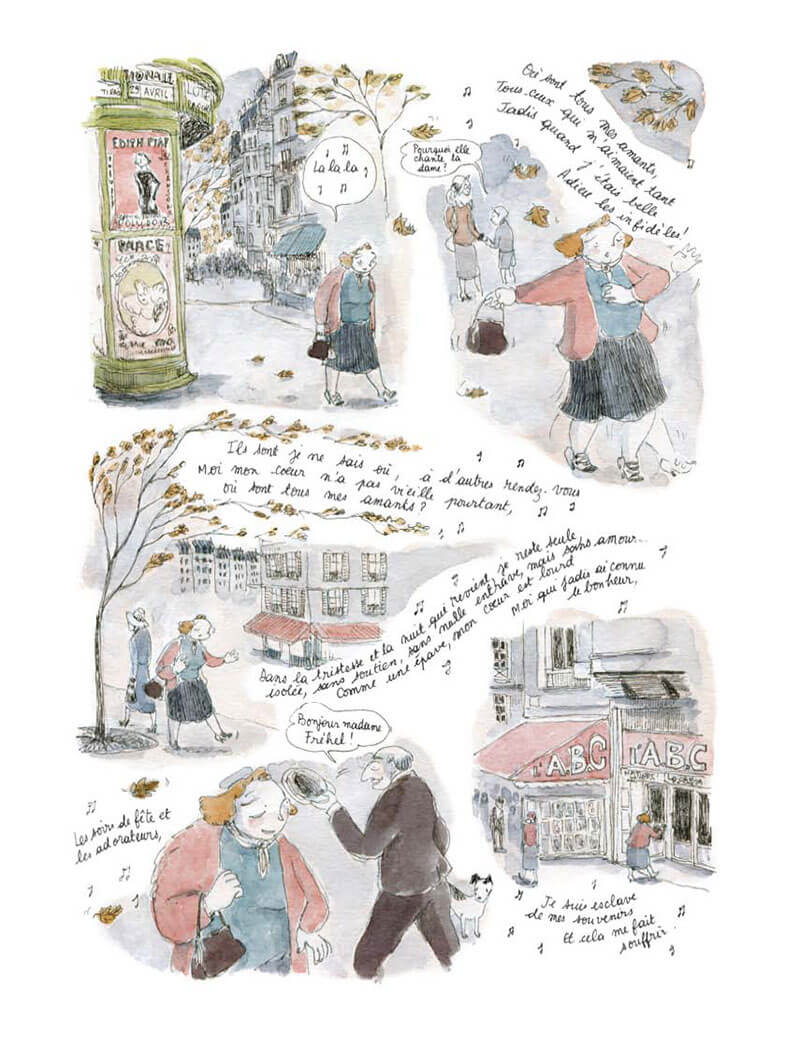 LOTE
TIONALE
29 AVRIL
EDITH PIAF
La la la
Pourquoi elle
chante la
dame ?
Où sont tous mes amants,
Tous ceux qui m'aimaient tant
Jadis quand j'étais belle
Adieu les infidèles !
Ils sont je ne sais où, à d'autres rendez-vous
Moi mon cœur n'a pas vieilli pourtant,
où sont tous mes amants ?
Dans la tristesse et la nuit qui revient je reste seule
isolée, sans soutien, sans nulle entrave, mais sans amour...
Comme une épave, mon cœur est lourd
Moi qui jadis ai connu
le bonheur,
Bonjour madame
Fréhel !
Les soirs de fête et
les adorateurs,
l'A.B.C
l'A.B.C
Je suis esclave
de mes souvenirs
Et cela me fait
souffrir.